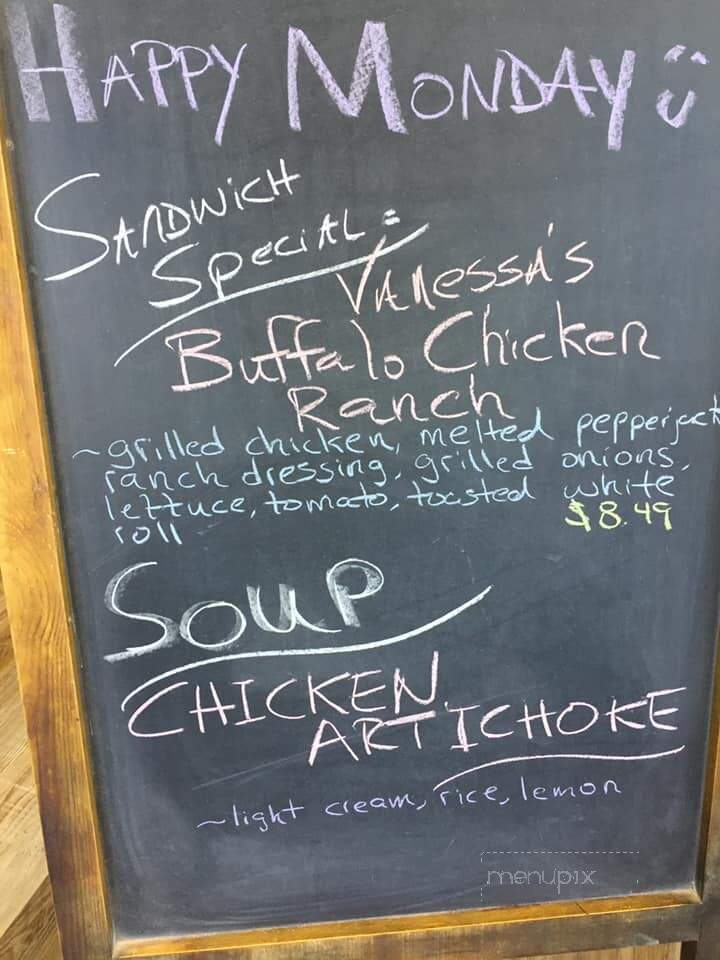 HAPPY MONDAY
SANDWICH
SPECIAL:
VANESSA'S
Buffalo Chicken
Ranch
~grilled chicken, melted pepperjack
ranch dressing, grilled onions,
lettuce, tomato, toasted white
roll $8.49
SOUP
CHICKEN
ARTICHOKE
~light cream, rice, lemon
menupix